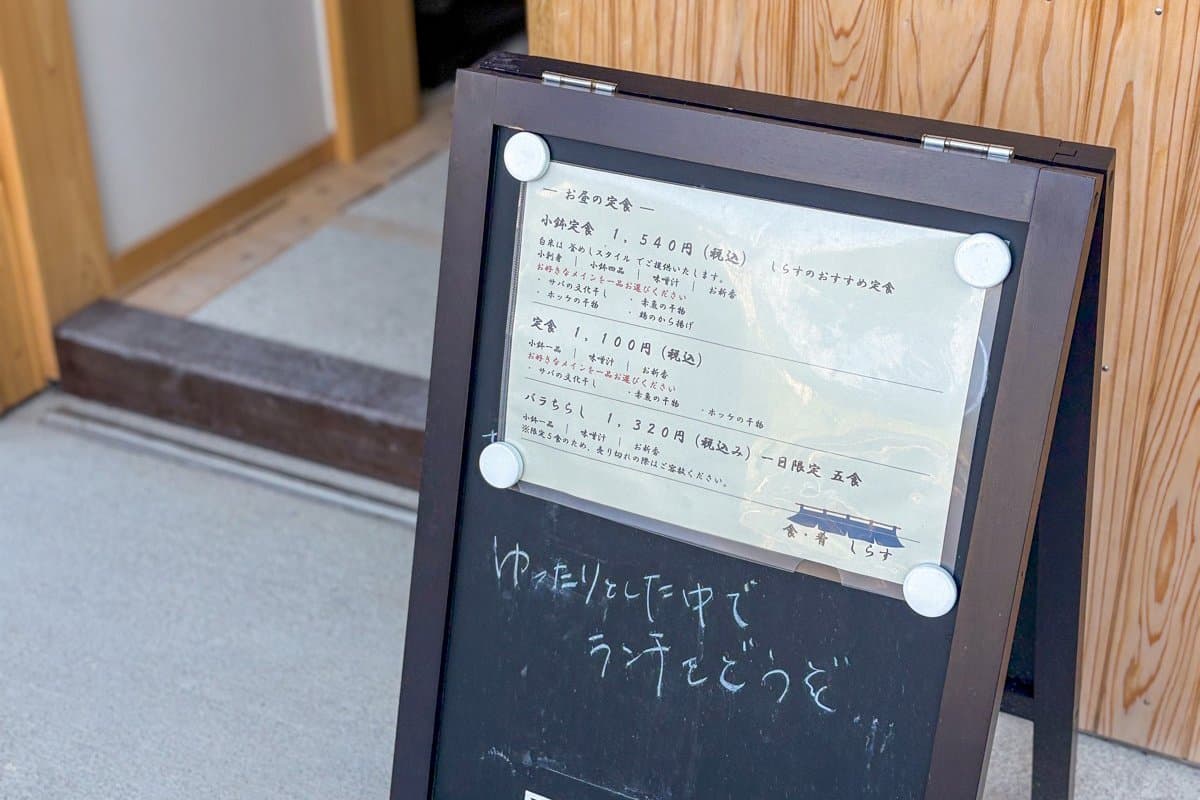 ― お昼の定食 ―
小鉢定食 1,540円(税込) しらすのおすすめ定食
白米は 釜めしスタイル でご提供いたします。
小刺身 | 小鉢四品 | 味噌汁 | お新香
お好きなメインを一品お選びください
・サバの文化干し ・赤魚の干物
・ホッケの干物 ・鶏のから揚げ
定食 1,100円(税込)
小鉢一品 | 味噌汁 | お新香
お好きなメインを一品お選びください
・サバの文化干し ・赤魚の干物 ・ホッケの干物
バラちらし 1,320円(税込み) 一日限定 五食
小鉢一品 | 味噌汁 | お新香
※限定5食のため、売り切れの際はご容赦ください。
食・肴 しらす
ゆったりとした中で
ランチをどうぞ...